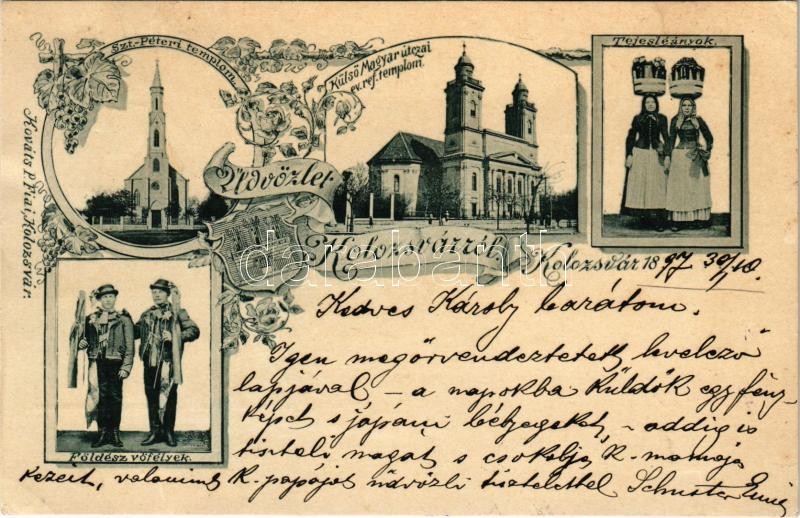 Szt.-Péteri templom.
Külső Magyar utczai
ev. ref. templom.
Tejesleányok.
Kováts P. Fiai, Kolozsvár.
Üdvözlet
Kolozsvárról
Kolozsvár 1897 30/10.
darabanth
Földész vőfélyek.
Kedves Károly barátom.
Igen megörvendeztetett levelező
lapjával – a napokba küldök egy fény-
képet s japáni bélyegeket, – addig is
tiszteli magát s csokolja K. mamája
kezeit, valamint K. papáját üdvözli tisztelettel Schuster